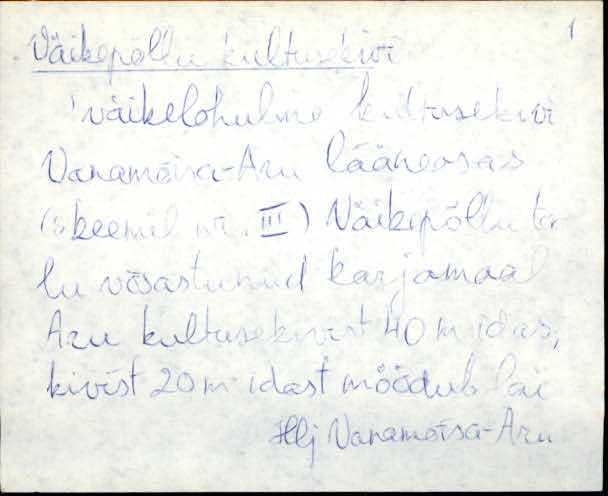 1
Väikepõllu kultusekivi
väikelohuline kultusekivi
Vanamõisa-Aru lääneosas
(skeemil nr. III) Väikepõllu ta-
lu võsastunud karjamaal
Aru kultusekivist 40 m idas,
kivist 20 m idast möödub lai
Vanamõisa-Aru